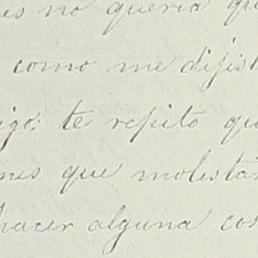 es no queria qu
como me dijist
igo: te repito qu
nes que molestar
hacer alguna cos